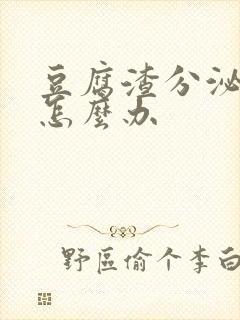 豆腐渣分泌
怎麼办
野區偷个李白